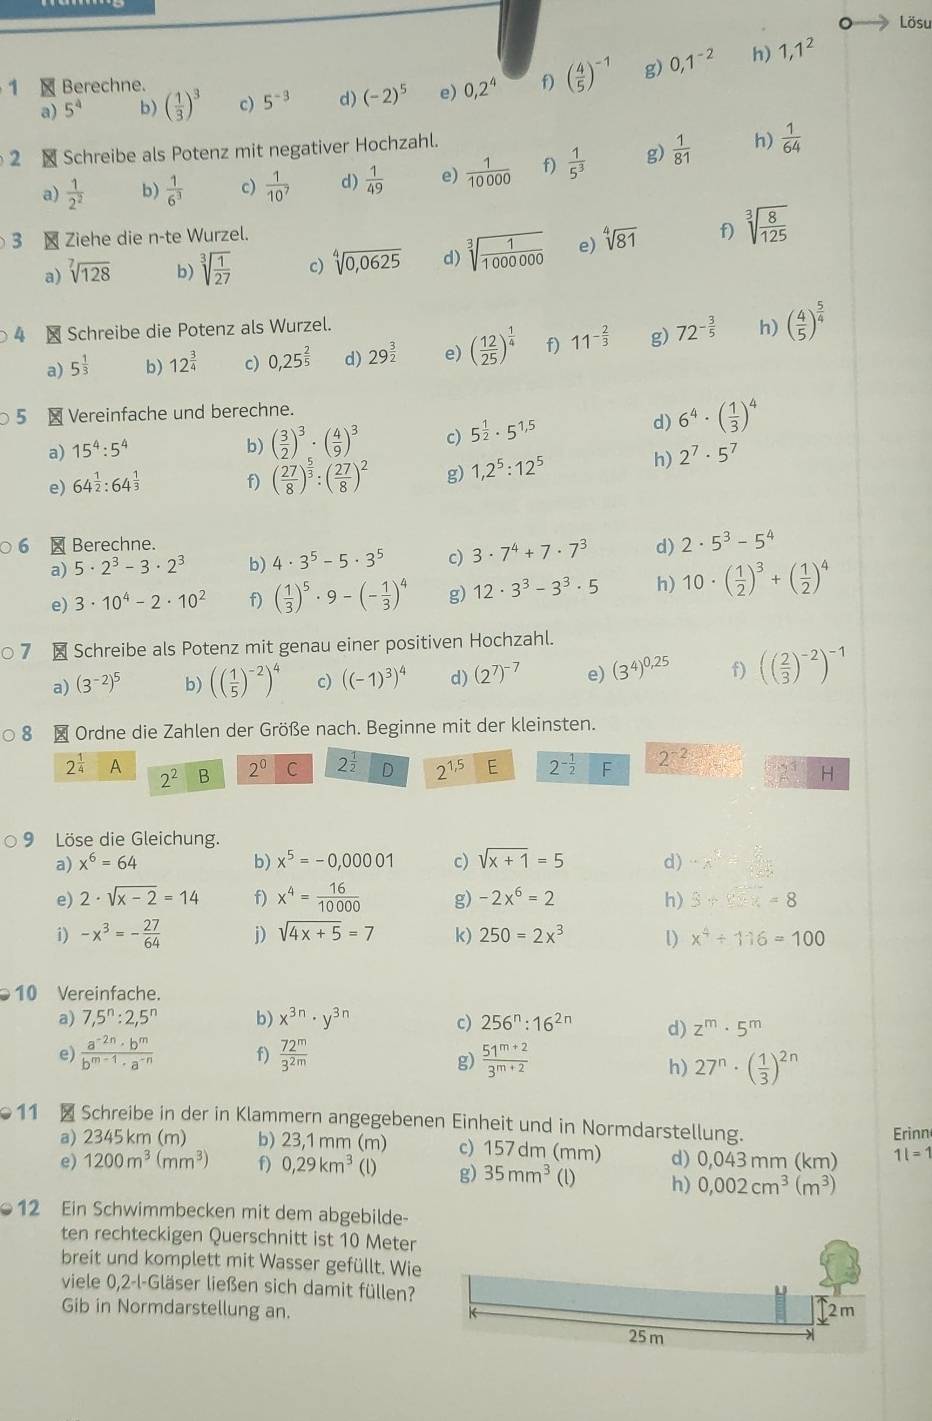 Lösu
1 Berechne.
a) 5⁴ b) (1/3)³ c) 5⁻³ d) (−2)⁵ e) 0,2⁴ f) (4/5)⁻¹ g) 0,1⁻² h) 1,1²
2 Schreibe als Potenz mit negativer Hochzahl.
a) 1/2² b) 1/6³ c) 1/10⁷ d) 1/49 e) 1/10 000 f) 1/5³ g) 1/81 h) 1/64
3 Ziehe die n-te Wurzel.
a) ⁷√128 b) ³√(1/27) c) ⁴√0,0625 d) ³√(1/1 000 000) e) ⁴√81 f) ³√(8/125)
4 Schreibe die Potenz als Wurzel.
a) 5^(1/3) b) 12^(3/4) c) 0,25^(2/5) d) 29^(3/2) e) (12/25)^(1/4) f) 11^(−2/3) g) 72^(−3/5) h) (4/5)^(5/4)
5 Vereinfache und berechne.
a) 15⁴ : 5⁴ b) (3/2)³ · (4/9)³ c) 5^(1/2) · 5^(1,5) d) 6⁴ · (1/3)⁴
e) 64^(1/2) : 64^(1/3) f) (27/8)^(5/3) : (27/8)² g) 1,2⁵ : 12⁵ h) 2⁷ · 5⁷
6 Berechne.
a) 5 · 2³ − 3 · 2³ b) 4 · 3⁵ − 5 · 3⁵ c) 3 · 7⁴ + 7 · 7³ d) 2 · 5³ − 5⁴
e) 3 · 10⁴ − 2 · 10² f) (1/3)⁵ · 9 − (−1/3)⁴ g) 12 · 3³ − 3³ · 5 h) 10 · (1/2)³ + (1/2)⁴
7 Schreibe als Potenz mit genau einer positiven Hochzahl.
a) (3⁻²)⁵ b) ((1/5)⁻²)⁴ c) ((−1)³)⁴ d) (2⁷)⁻⁷ e) (3⁴)^(0,25) f) ((2/3)⁻²)⁻¹
8 Ordne die Zahlen der Größe nach. Beginne mit der kleinsten.
2^(1/4) A 2² B 2⁰ C 2^(1/2) D 2^(1,5) E 2^(−1/2) F 2⁻² H
9 Löse die Gleichung.
a) x⁶ = 64 b) x⁵ = −0,000 01 c) √(x + 1) = 5 d)
e) 2 · √(x − 2) = 14 f) x⁴ = 16/10 000 g) −2x⁶ = 2 h) = 8
i) −x³ = −27/64 j) √(4x + 5) = 7 k) 250 = 2x³ l) x⁴ + 116 = 100
10 Vereinfache.
a) 7,5ⁿ : 2,5ⁿ b) x³ⁿ · y³ⁿ c) 256ⁿ : 16²ⁿ d) zᵐ · 5ᵐ
e) (a⁻²ⁿ · bᵐ)/(bᵐ⁻¹ · a⁻ⁿ) f) 72ᵐ/3²ᵐ g) 51ᵐ⁺²/3ᵐ⁺² h) 27ⁿ · (1/3)²ⁿ
11 Schreibe in der in Klammern angegebenen Einheit und in Normdarstellung.
a) 2345 km (m) b) 23,1 mm (m) c) 157 dm (mm) d) 0,043 mm (km)
e) 1200 m³ (mm³) f) 0,29 km³ (l) g) 35 mm³ (l) h) 0,002 cm³ (m³)
Erinn
1 l = 1
12 Ein Schwimmbecken mit dem abgebilde-
ten rechteckigen Querschnitt ist 10 Meter
breit und komplett mit Wasser gefüllt. Wie
viele 0,2-l-Gläser ließen sich damit füllen?
Gib in Normdarstellung an.
2 m
25 m